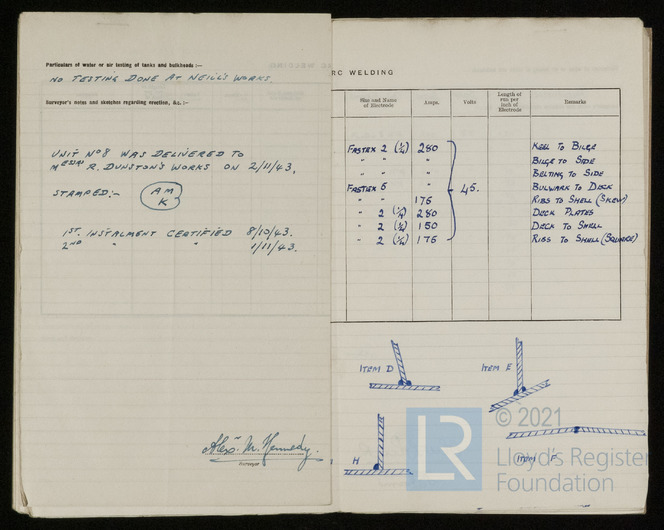 Particulars of water or air testing of tanks and bulkheads :—
NO TESTING DONE AT NEILL'S WORKS
Surveyor's notes and sketches regarding erection, &c. :—
UNIT Nº 8 WAS DELIVERED TO
MESSRS R. DUNSTON'S WORKS ON 2/11/43.
STAMPED:- AM
K
1ST. INSTALMENT CERTIFIED 8/10/43.
2ND " " 1/11/43.
Alex. M. Kennedy.
Surveyor
RC WELDING
Size and Name of Electrode Amps. Volts Length of run per inch of Electrode Remarks
FASTEX 2 (1/4) 280 KEEL TO BILGE
" " " BILGE TO SIDE
" " " BELTING TO SIDE
FASTEX 5 " 45. BULWARK TO DECK
" " 175 RIBS TO SHELL (SKEW)
" 2 (1/4) 280 DECK PLATES
" 2 150 DECK TO SHELL
" 2 175 RIBS TO SHELL (SQUARE)
ITEM D
ITEM E
H
ITEM F
LR
© 2021
Lloyd's Register
Foundation